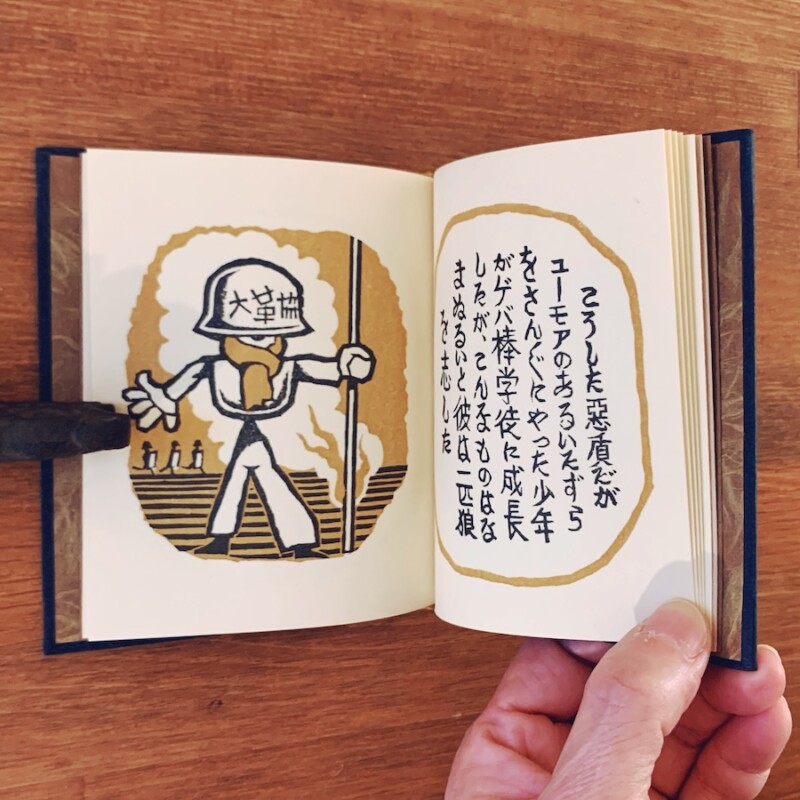 大革協
こうした惡質だが
ユーモアのあるいたずら
をさん〲にやった少年
がゲバ棒学徒に成長
したが、こんなものはな
まぬるいと彼は一匹狼
を志した